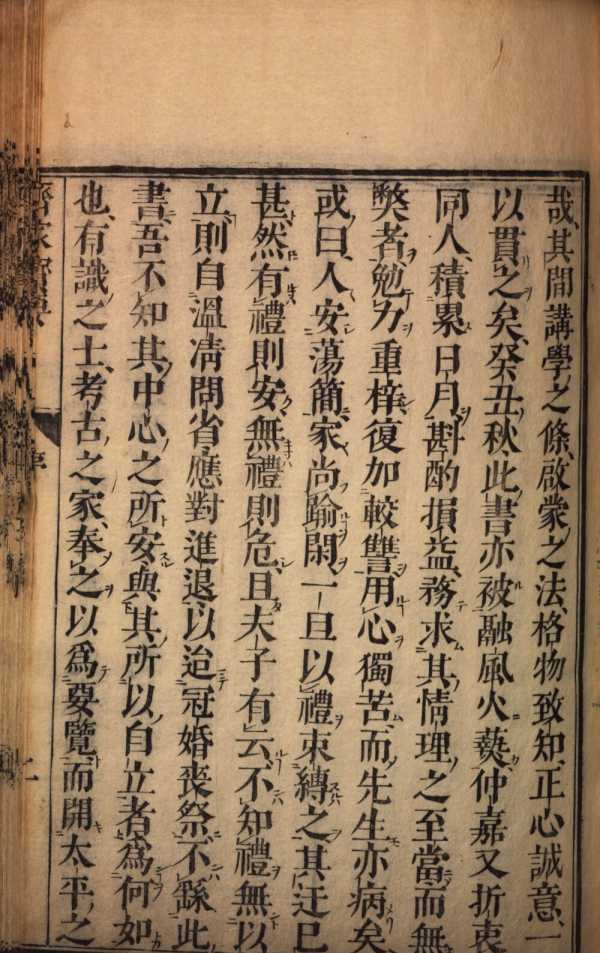 哉其開講學之條啟蒙之法格物致知正心誠意一
以貫之矣癸丑秋此書亦被融風火爇仲嘉又折衷
同人積累日月斟酌損益務求其情理之至當而無
獘者勉力重梓復加較讐用心獨苦而先生亦病矣
或曰人安蕩簡家尚踰閑一旦以禮束縛之其迂巳
甚然有禮則安無禮則危且夫子有云不知禮無以
立則自溫凊問省應對進退以迨冠婚喪祭不繇此
書吾不知其中心之所安與其所以自立者爲何如
也有識之士考古之家奉之以爲要覽而開太平之